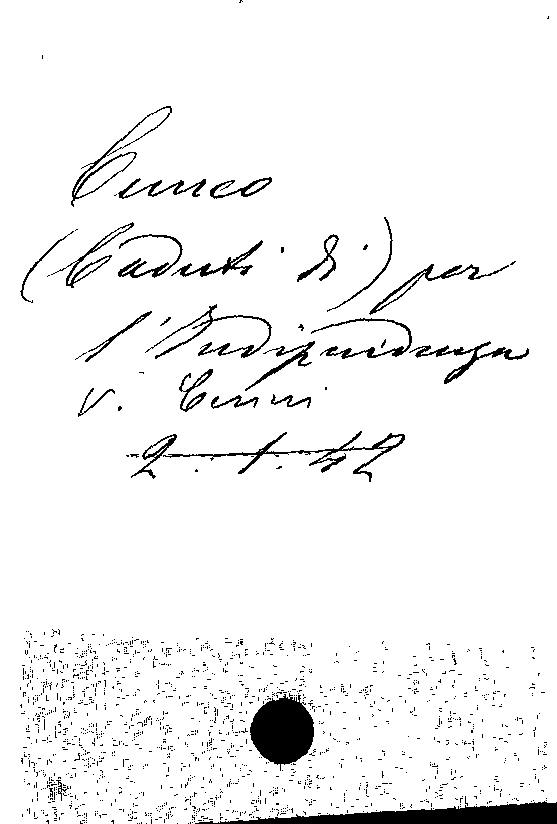 Cuneo
(Caduti di) per
l'Indipendenza
v. Cenni
2.1.42